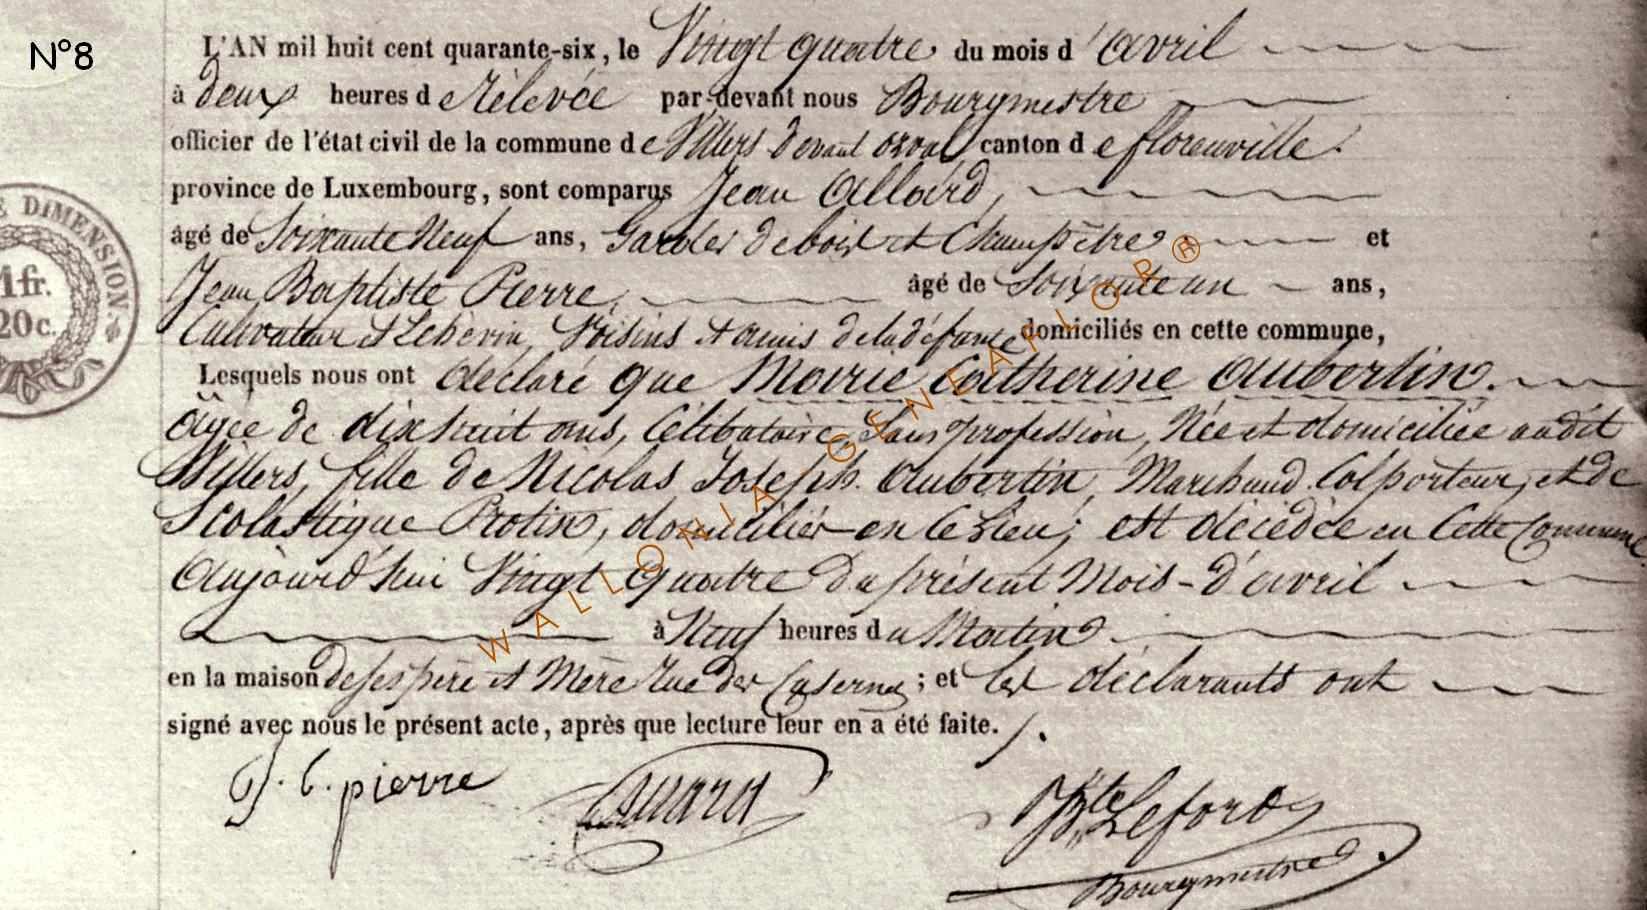 N°8
L'AN mil huit cent quarante-six, le Vingt quatre du mois d'avril
à deux heures de rélevée par-devant nous Bourgmestre
officier de l'état civil de la commune de Villers devant orval canton de florenville.
province de Luxembourg, sont comparus Jean Allard,
âgé de Soixante Neuf ans, Garde de bois et Champêtre et
Jean Baptiste Pierre, âgé de Soixante un ans,
Cultivateur et Echevin, Voisins et amis de la défunte domiciliés en cette commune,
Lesquels nous ont déclaré que Marie Catherine Aubertin.
âgée de dixhuit ans, Célibataire, Sans profession, Née et domiciliée audit
Villers, fille de Nicolas Joseph Aubertin, Marchand Colporteur, et de
Scolastique Protin, domiciliés en ce Lieu; est décédée en Cette Commune
Aujourd'hui Vingt quatre du présent Mois-d'avril
à Neuf heures du Matin.
en la maison de ses père et Mère Rue des Casernes; et les déclarants ont
signé avec nous le présent acte, après que lecture leur en a été faite./.
J. b. pierre
Bte Leford
Bourgmestre.
E DIMENSION.
1fr.
20c.
WALLONIA-GENEAFLOR®